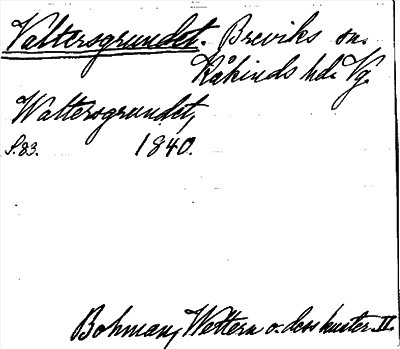 Valtersgrundet. Breviks sn.
Kåkinds hd. Vg.
Waltersgrundet,
S. 83. 1840.
Bohman, Wettern o. dess kuster. II.